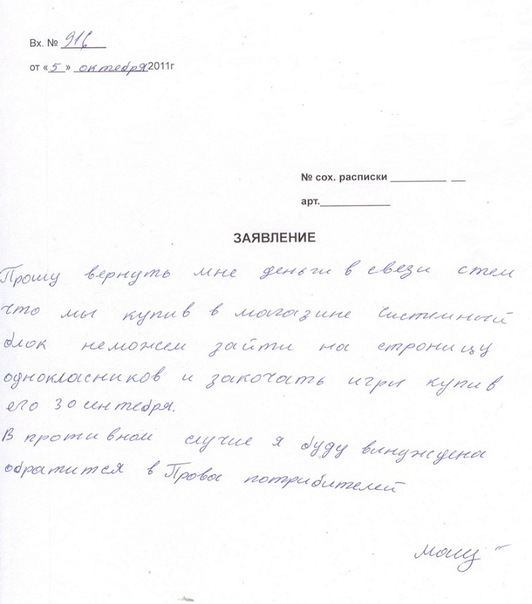 Вх. № 916
от «5» октября 2011г
№ сох. расписки
арт.
ЗАЯВЛЕНИЕ
Прошу вернуть мне деньги в свези стем
что мы купив в магазине системный
блок неможем зайти на строницу
однокласников и закочать игри купив
его 30 сентебря.
В противном случие я буду винуждена
обратится в Права потрибителей